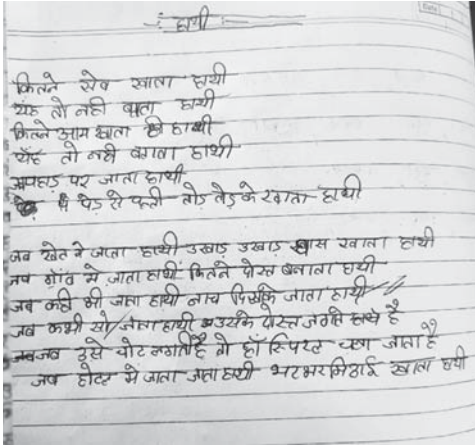 हाथी
कितने सेब खाता हाथी
यह तो नही बाता हाथी
कितने आम खाता ही हाथी
यह तो नही बताता हाथी
पहाड पर जाता हाथी
में पेड से पत्ती तोड तोड के खाता हाथी
जब खेत मे जाता हाथी उखाड उखाड घास खाता हाथी
जब गाँव मे जाता हाथी कितने दोस्त बनाता हाथी
जब कही भी जाता हाथी नाच जाता हाथी
जब कभी सो जाता हाथी उसके दोस्त जगाते हाथी है
जब उसे चोट लगती है तो हॉस्पिटल चला जाता है
जब होटल में जाता जाता हाथी भर मिठाई खाता हाथी